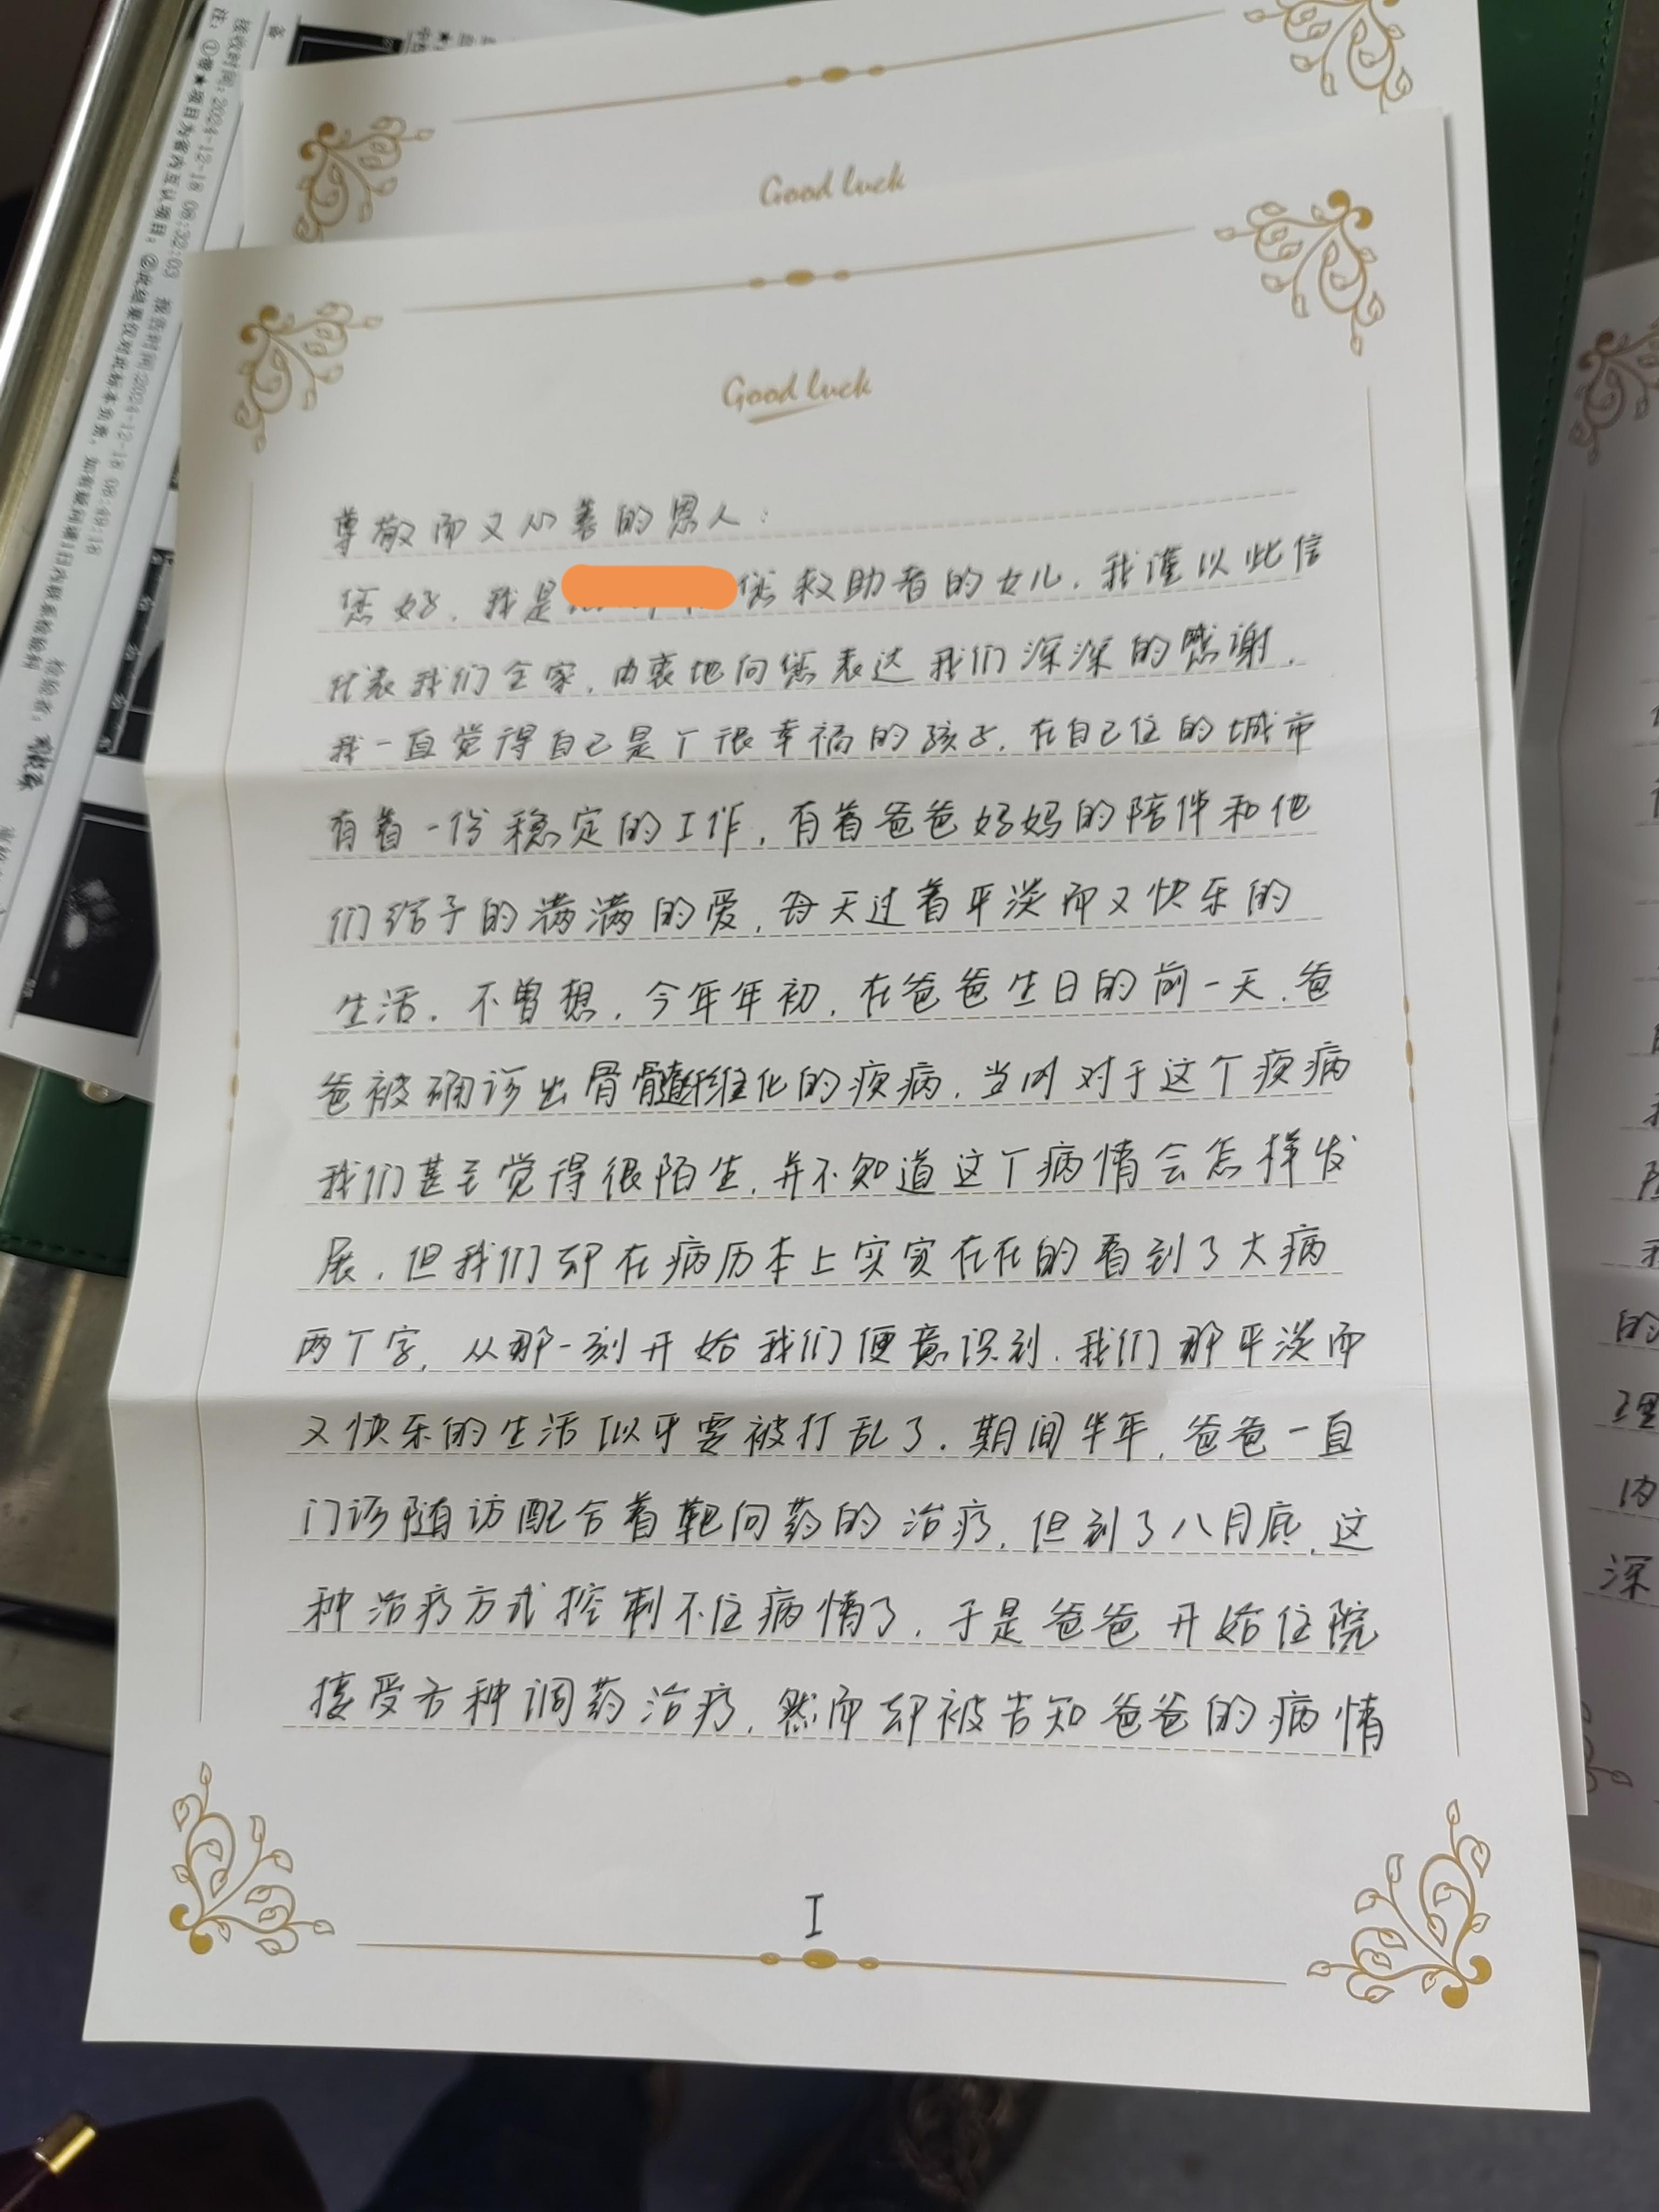 接收时间:2024-12-18 08:32:03 报告时间:2024-12-18 08:49:18
注:①带★项目为省内互认项目;②此结果仅对此标本负责,如有疑问请1日内联系检验科
Good luck
Good luck
尊敬而又心善的恩人:
您好,我是 您救助者的女儿,我谨以此信
代表我们全家,由衷地向您表达我们深深的感谢,
我一直觉得自己是个很幸福的孩子,在自己住的城市
有着一份稳定的工作,有着爸爸妈妈的陪伴和他
们给予的满满的爱,每天过着平淡而又快乐的
生活。不曾想,今年年初,在爸爸生日的前一天,爸
爸被确诊出骨髓纤维化的疾病,当时对于这个疾病
我们甚至觉得很陌生,并不知道这个病情会怎样发
展,但我们却在病历本上实实在在的看到了大病
两个字,从那一刻开始我们便意识到,我们那平淡而
又快乐的生活似乎要被打乱了。期间半年,爸爸一直
门诊随访配合着靶向药的治疗,但到了八月底,这
种治疗方式控制不住病情了,于是爸爸开始住院
接受各种调药治疗,然而却被告知爸爸的病情
I
的
理
内
深